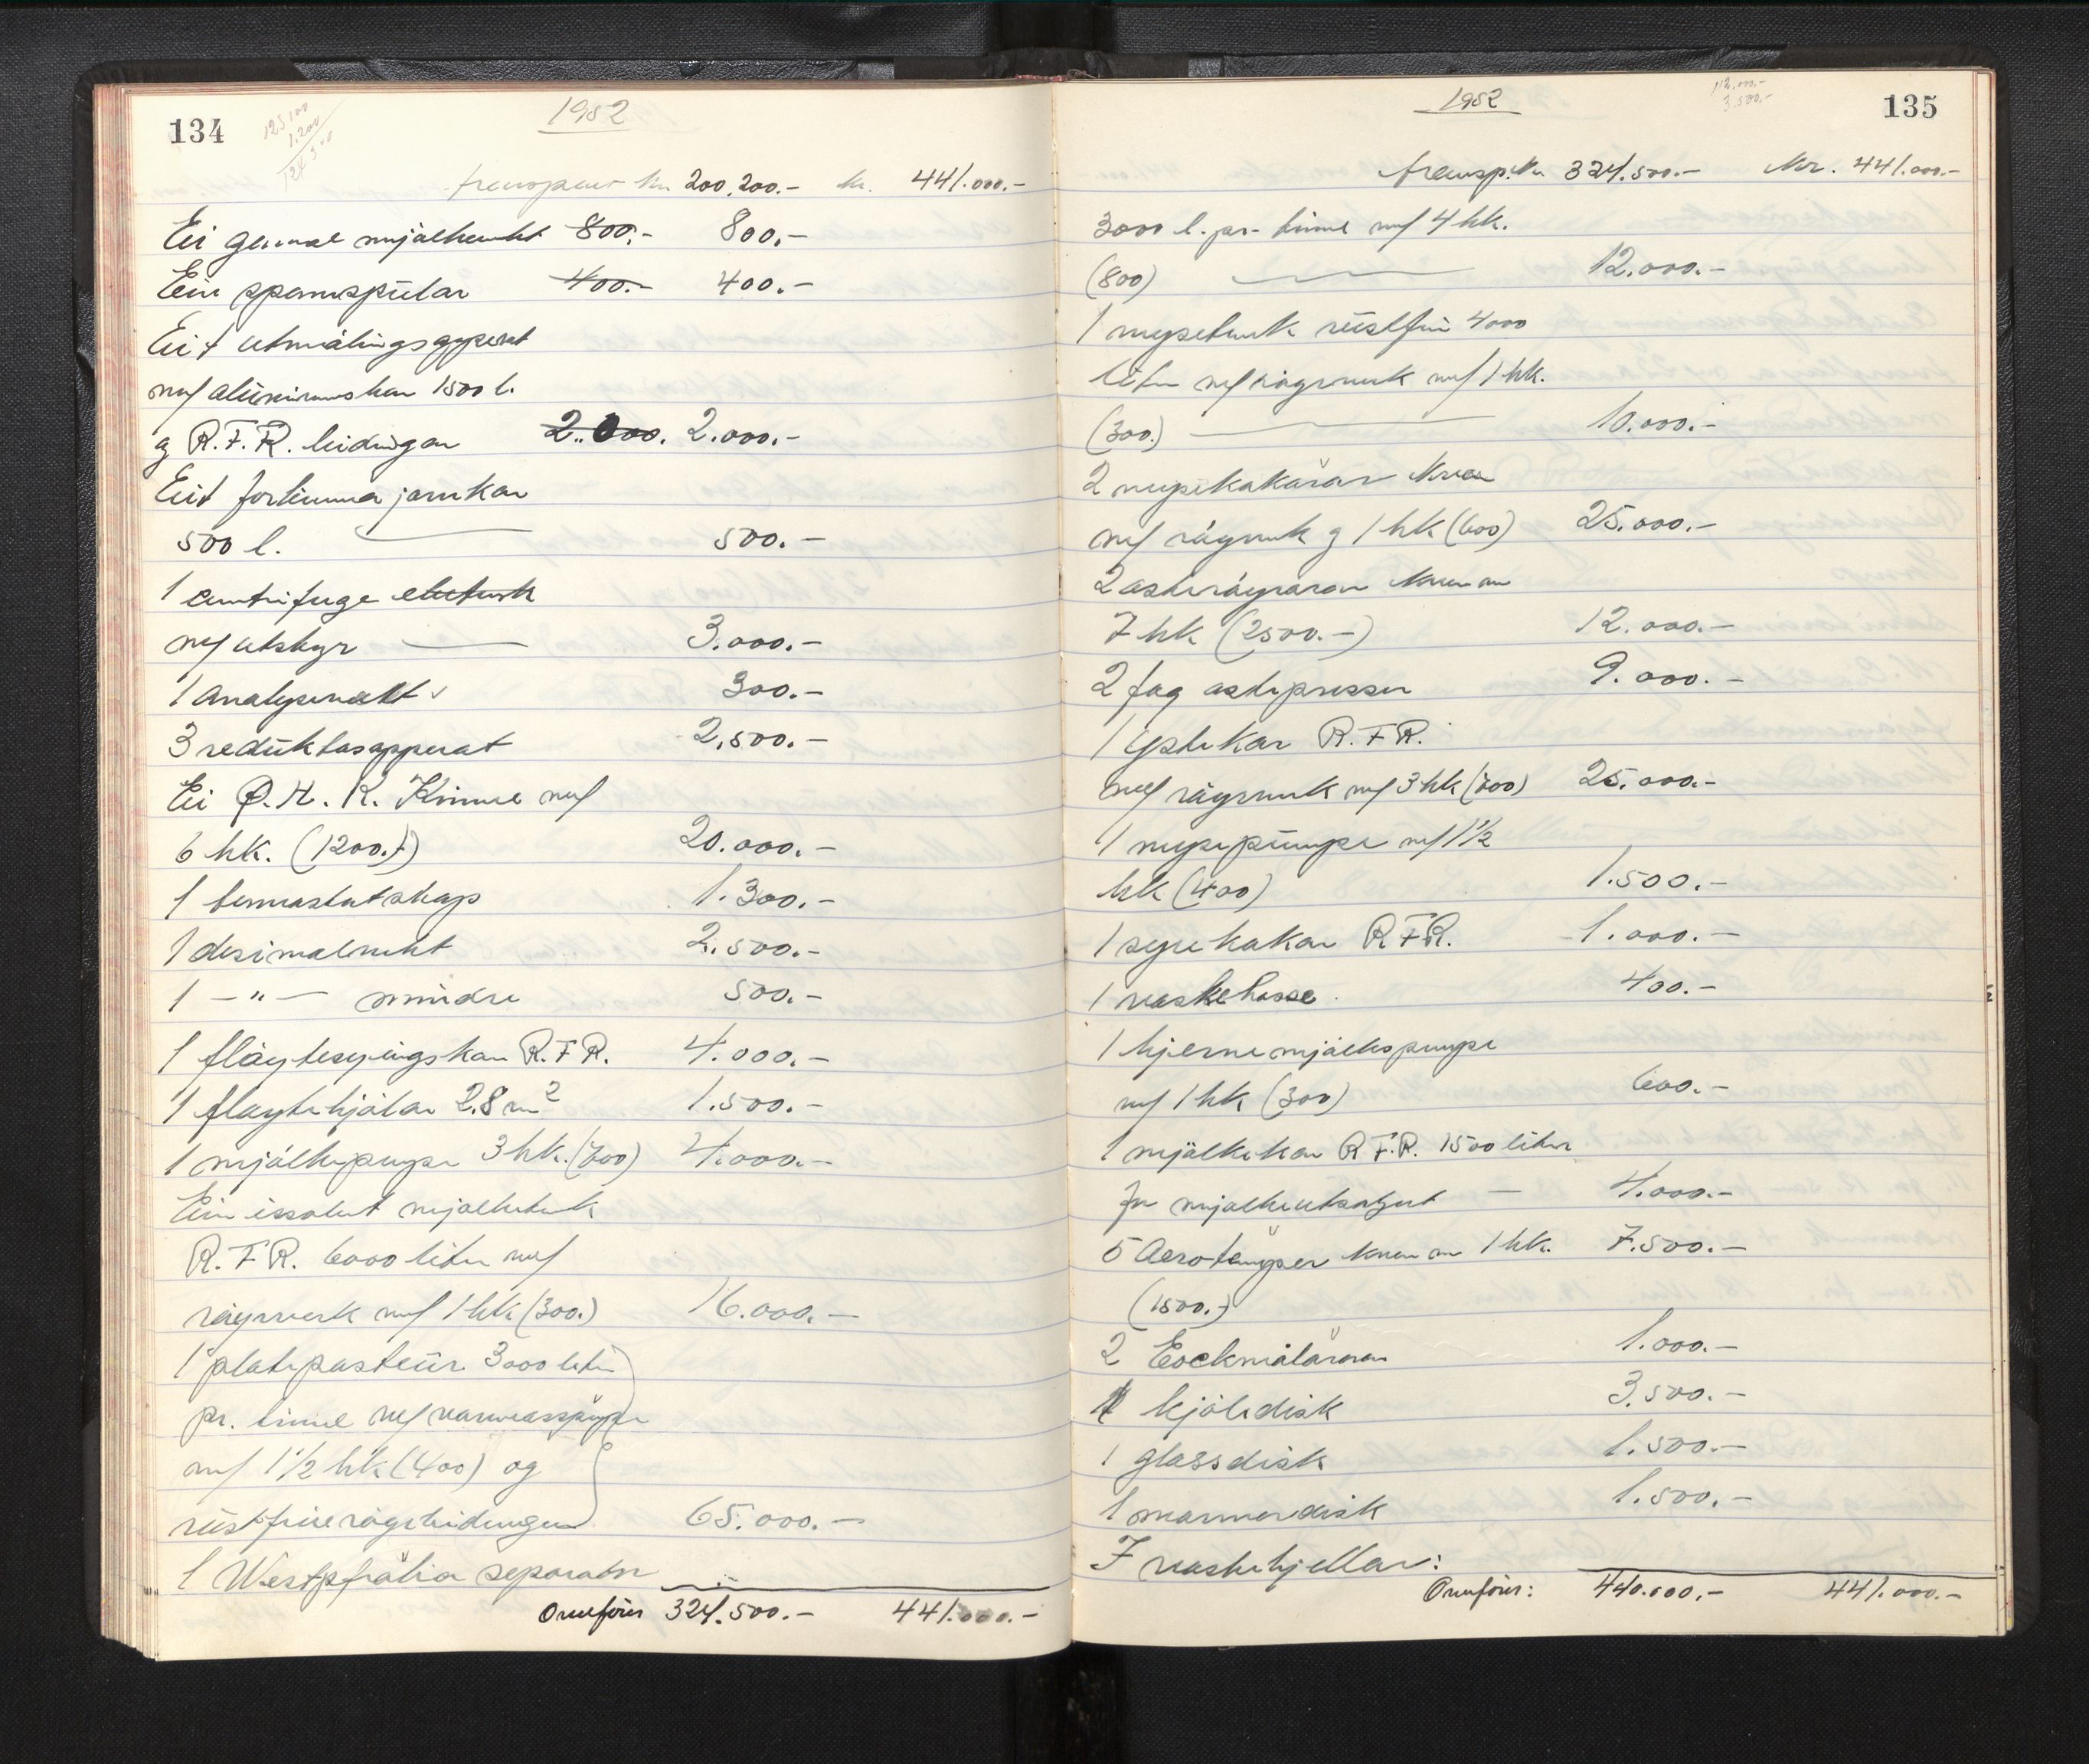 134
125 100
1.200
124 300
1952
transport kr. 200,200.- kr. 441.000.-
Ei gamal mjølkevekt 800.- 800.-
Ein spannspylar 400.- 400.-
Eit utmålingsapperat
m/ aluminiumskar 1500 l.
og R.F.R. leidingar 2.000. 2.000.-
Eit fortinna jarnkar
500 l. 500.-
1 sentrifuge elektrisk
m/ utstyr 3.000.-
1 analysevekt 300.-
3 reduktasapperat 2,500.-
Ei Ø.H.K. Kinne m/
6 hk. (1200.-) 20.000.-
1 termostatskap 1.300.-
1 desimalvekt 2.500.-
1 -"- mindre 500.-
1 fløytesyringskar R.F.R. 4.000.-
1 fløytekjølar 2.8 m2 1.500.-
1 mjølkepumpe 3 hk. (700) 4.000.-
Ein issolert mjølketank
R.F.R. 6000 liter m/
røyrverk m/ 1 hk (300.) 16.000.-
1 platepasteur 3000 liter
pr. time m/ varmvasspumpe
m/ 1 1/2 hk (400) og
rustfrie røyrleidungen 65.000.-
1 Westpfralia separator
Overføres 324.500.- 441.000.-
135
112.000.-
3.500.-
1952
transp. kr 324.500.- Kr. 441.000.-
3000 l. pr. time m/ 4 hk.
(800) 12.000.-
1 mysetank rustfri 4000
liter m/ røyrverk m/ 1 hk.
(300.) 10.000.-
2 mysekokarar kvar
m/ røyrverk og 1 hk (600) 25.000.-
2 osterøyrarar kvar on
7 hk (2500.-) 12.000.-
2 fag ostepresser 9.000.-
1 ystekar R.F.R.
m/ røyrverk m/ 3 hk (700) 25.000.-
1 mysepumpe m/ 1 1/2
hk (400) 1.500.-
1 syrekokar R.F.R. 1.000.-
1 vaskekasse. 400.-
1 kjernemjølkspumpe
m/ 1 hk (300) 600.-
1 mjølkekar R.F.R. 1500 liter
for mjølkeutsalget 4.000.-
5 Aerotemper kvar on 1 hk. 7.500.-
(1500.-)
2 Eockmålarar 1.000.-
1 kjøledisk 3,500.-
1 glassdisk 1.500.-
1 marmordisk 1.500.-
7 vaskekjellar:
Overføres: 440.000,- 441.000.-